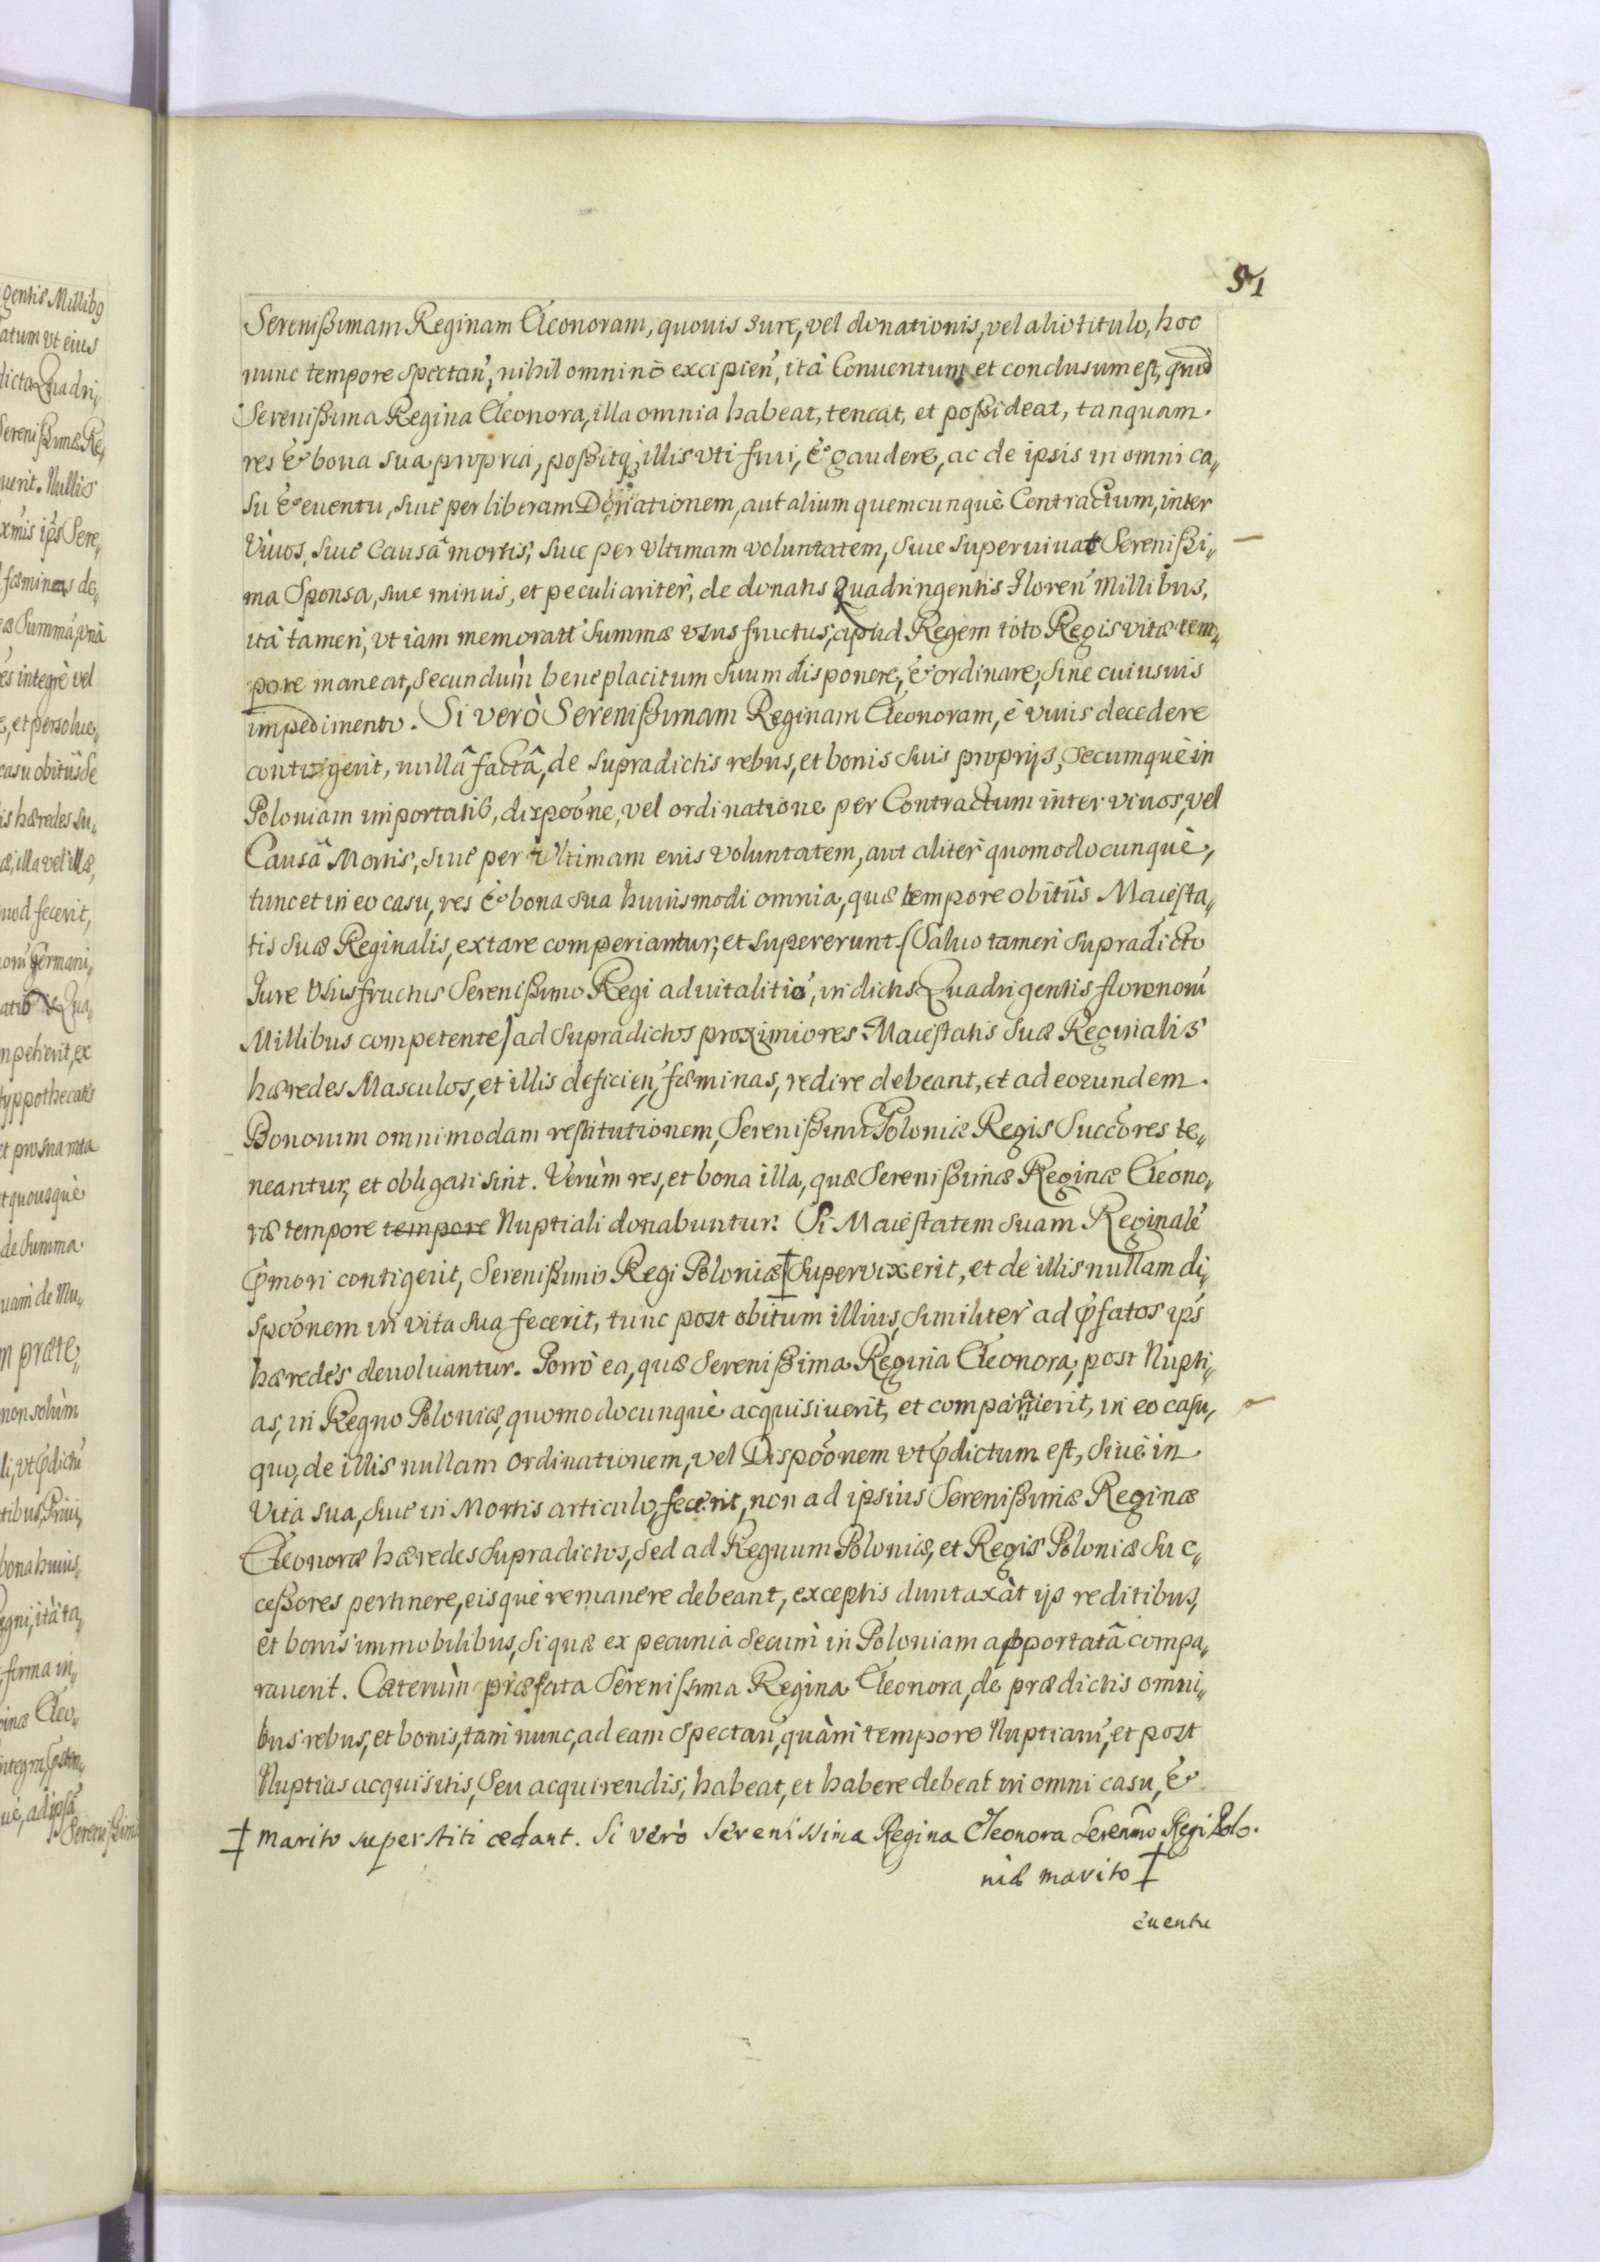 51
Serenißimam Reginam Eleonoram, quouis iure, vel donationis, vel alio titulo, hoc
nunc tempore spectan̄, nihil omninò excipien̄, ità Conuentum et conclusum est, quod
Serenißima Regina Eleonora, illa omnia habeat, teneat, et poßideat, tanquam
res & bona sua propria, poßitq; illis vti frui, & gaudere, ac de ipsis in omni ca„
su & euentu, siue per liberam Donationem, aut alium quemcunquè Contractum, inter
Viuos, siue Causâ mortis, siue per Vltimam voluntatem, siue superuiuat Serenißi„
ma Sponsa, siue minus, et peculiariter, de donatis Quadringentis Floren̄ Millibus,
ità tamen, vt iam memoratæ Summæ vsus fructus, apud Regem toto Regis vitæ tem„
pore maneat, secundùm beneplacitum suum disponere, & ordinare, sine cuiusuis
impedimento. Si verò Serenißimam Reginam Eleonoram, è viuis decedere
contigerit, nullâ factâ, de supradictis rebus, et bonis suis proprijs, secumquè in
Poloniam importatis, dispoōne, vel ordinatione per Contractum inter viuos, vel
Causâ Mortis, siue per Vltimam eius voluntatem, aut alitèr quomodocunquè,
tunc et in eo casu, res & bona sua huiusmodi omnia, quæ tempore obitûs Maiesta„
tis suæ Reginalis, extare comperiantur, et supererunt. (Saluo tamen supradicto
Jure Vsusfructus Serenißimo Regi aduitalitiō, in dictis Quadrigentis florenorū
Millibus competente) ad supradictos proximiores Maiestatis suæ Reginalis
hæredes Masculos, et illis deficien̄, fæminas, redire debeant, et ad eorundem
Bonorum omnimodam restitutionem, Serenißimi Poloniæ Regis Succōres te„
neantur, et obligati sint. Verùm res, et bona illa, quæ Serenißimæ Reginæ Eleono„
ræ tempore tempore Nuptiali donabuntur: Si Maiestatem suam Reginalē
p̄mori contigerit, Serenißimo Regi Poloniæ ‡ Supervixerit, et de illis nullam di„
spoōnem in vita sua fecerit, tunc post obitum illius, similiter ad p̄fatos ips̄
hæredes deuoluantur. Porrò ea, quæ Serenißima Regina Eleonora, post Nupti„
as, in Regno Poloniæ, quomodocunquè acquisiuerit, et comparauerit, in eo casu,
quo, de illis nullam ordinationem, vel Dispoōnem vt p̄dictum est, siuè in
Vita sua, siue in Mortis articulo, fecerit, non ad ipsius Serenißimæ Reginæ
Eleonoræ hæredes supradictos, sed ad Regnum Poloniæ, et Regis Poloniæ suc„
ceßores pertinere, eisquè remanere debeant, exceptis duntaxàt ijs reditibus,
et bonis immobilibus, si quæ ex pecunia secum in Poloniam apportatâ compa„
rauerit. Cæterùm præfata Serenissima Regina Eleonora, de prædictis omni„
bus rebus, et bonis, tam nunc, ad eam spectan̄, quàm tempore Nuptiarū, et post
Nuptias acquisitis, seu acquirendis, habeat, et habere debeat in omni casu, &
‡ marito superstiti cedant. Si verò Serenissima Regina Eleonora Serenm̄o Regi Polo.
niæ marito ‡
euentu